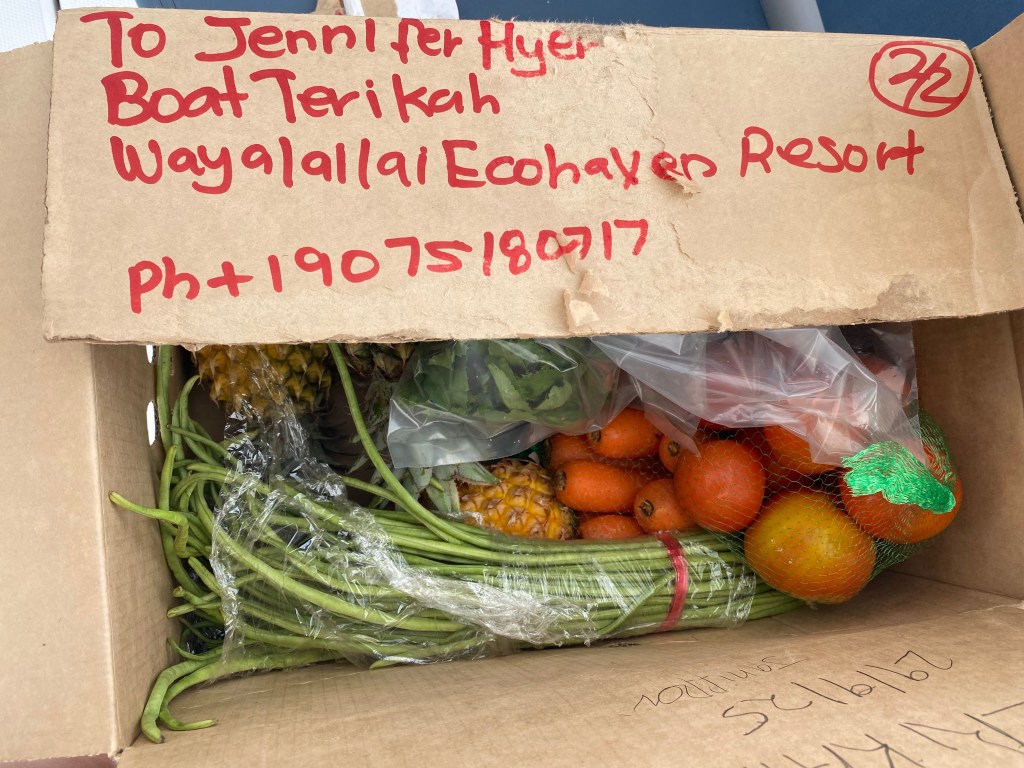 To Jennifer Hyer
2/2
Boat Terikah
Wayalailai Ecohaven Resort
Ph+19075180717
29/9/25